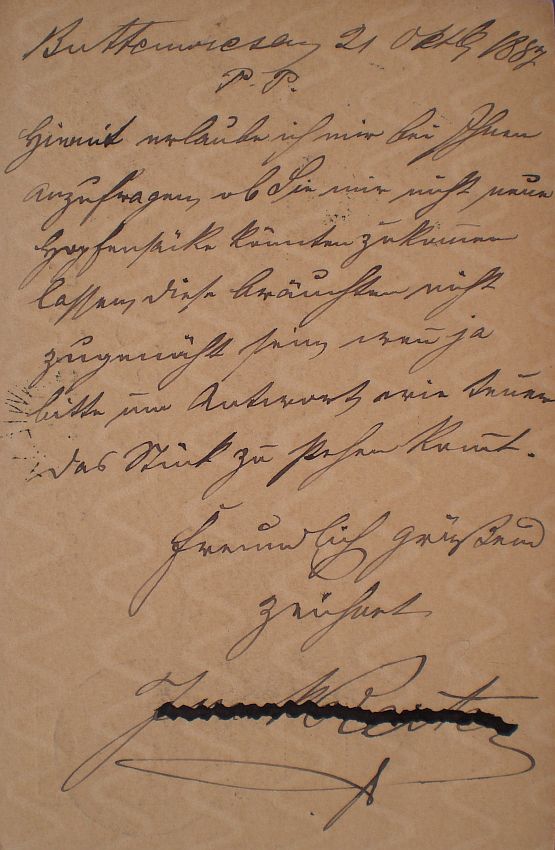 Buttenwiesen, 21 Oktb 1887
P. P.
Hiemit erlaube ich mir bei Ihnen
anzufragen, ob Sie mir nicht neue
Hopfensäcke könnten zukommen
lassen, diese bräuchten nicht
zugenäht sein, wenn ja
bitte um Antwort, wie teuer
das Stück zu stehen kommt.
Freundlich grüßend
zeichnet